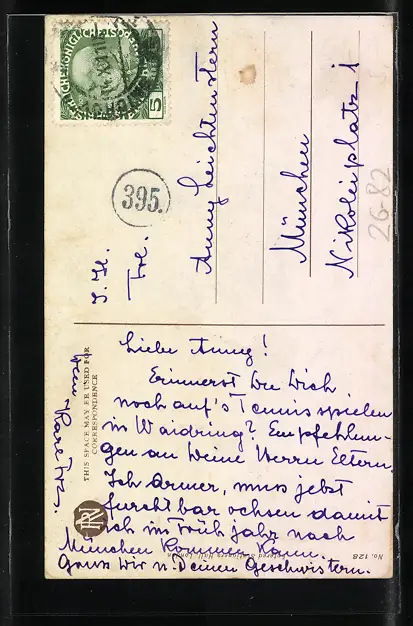 5
395.
S. H.
Frl.
Anny Leichtenstern
München
Nikoleiplatz 1
26-82
THIS SPACE MAY BE USED FOR
CORRESPONDENCE
Liebe Anny!
Erinnerst Du Dich
noch auf's Tennisspielen
in Waidring? Empfehlun-
gen an Deine Herrn Eltern.
Ich Armer, muss jetzt
furchtbar ochsen damit
ich im Frühjahr nach
München kommen kann.
Gruss Dir u. Deinen Geschwistern.
Dein
No. 128